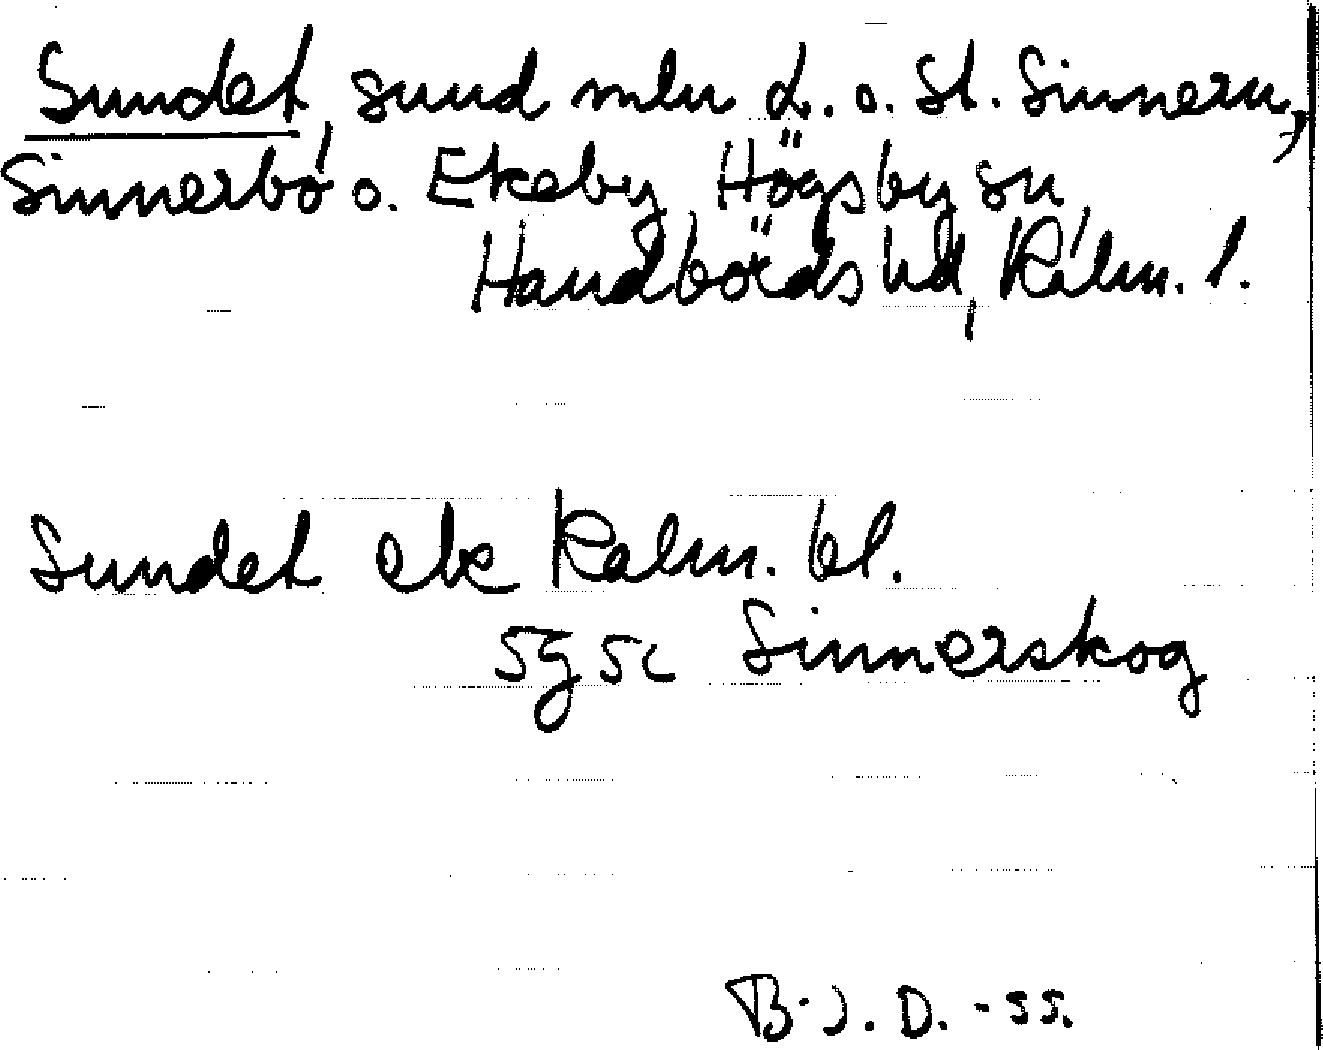 Sundet, sund mln L. o. St. Sinnern,
Sinnerbo o. Ekeby, Högsby sn,
Handbörds hd, Kalm. l.
Sundet ek Kalm. bl.
5g5c Sinnerskog
B. J. D. -55.